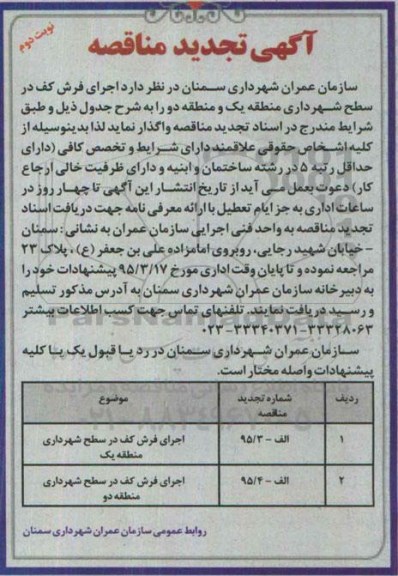 آگهی تجدید مناقصه
نوبت دوم
سازمان عمران شهرداری سمنان در نظر دارد اجرای فرش کف در
سطح شهرداری منطقه یک و منطقه دو را به شرح جدول ذیل و طبق
شرایط مندرج در اسناد تجدید مناقصه واگذار نماید لذا بدینوسیله از
کلیه اشخاص حقوقی علاقمند دارای شرایط و تخصص کافی (دارای
حداقل رتبه ۵ در رشته ساختمان و ابنیه و دارای ظرفیت خالی ارجاع
کار) دعوت بعمل می آید از تاریخ انتشار این آگهی تا چهار روز در
ساعات اداری به جز ایام تعطیل با ارائه معرفی نامه جهت دریافت اسناد
تجدید مناقصه به واحد فنی اجرایی سازمان عمران به نشانی : سمنان
- خیابان شهید رجایی، روبروی امامزاده علی بن جعفر (ع) ، پلاک ۲۳
مراجعه نموده و تا پایان وقت اداری مورخ ۹۵/۳/۱۷ پیشنهادات خود را
به دبیرخانه سازمان عمران شهرداری سمنان به آدرس مذکور تسلیم
و رسید دریافت نمایند. تلفنهای تماس جهت کسب اطلاعات بیشتر
۰۲۳-۳۳۳۴۰۳۷۱-۳۳۳۲۸۰۶۳
سازمان عمران شهرداری سمنان در رد یا قبول یک یا کلیه
پیشنهادات واصله مختار است.
ردیف شماره تجدید مناقصه موضوع
۱ الف - ۹۵/۳ اجرای فرش کف در سطح شهرداری
منطقه یک
۲ الف - ۹۵/۴ اجرای فرش کف در سطح شهرداری
منطقه دو
روابط عمومی سازمان عمران شهرداری سمنان